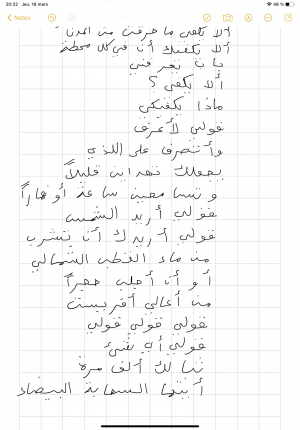 20:22 Jeu. 18 mars
48 %
Notes
ألا يكفي ما حرقت من المدن
ألا يكفيك أن في كل محطة
بأن تعرفني
ألا يكفي؟
ماذا يكفيكي
قولي لأعرف
وأتصرف على اللذي
يجعلك تهدأين قليلاً
و تنسا معين ساعة أو نهاراً
قولي أريد الشمس
قولي أريدك أنا تشرب
من ماء القطب الشمالي
أو أنا أجلب حجراً
من أعالي أفريست
قولي قولي قولي
قولي أي شيء
ثنا لك ألف مرة
أيتها السحابة البيضاء